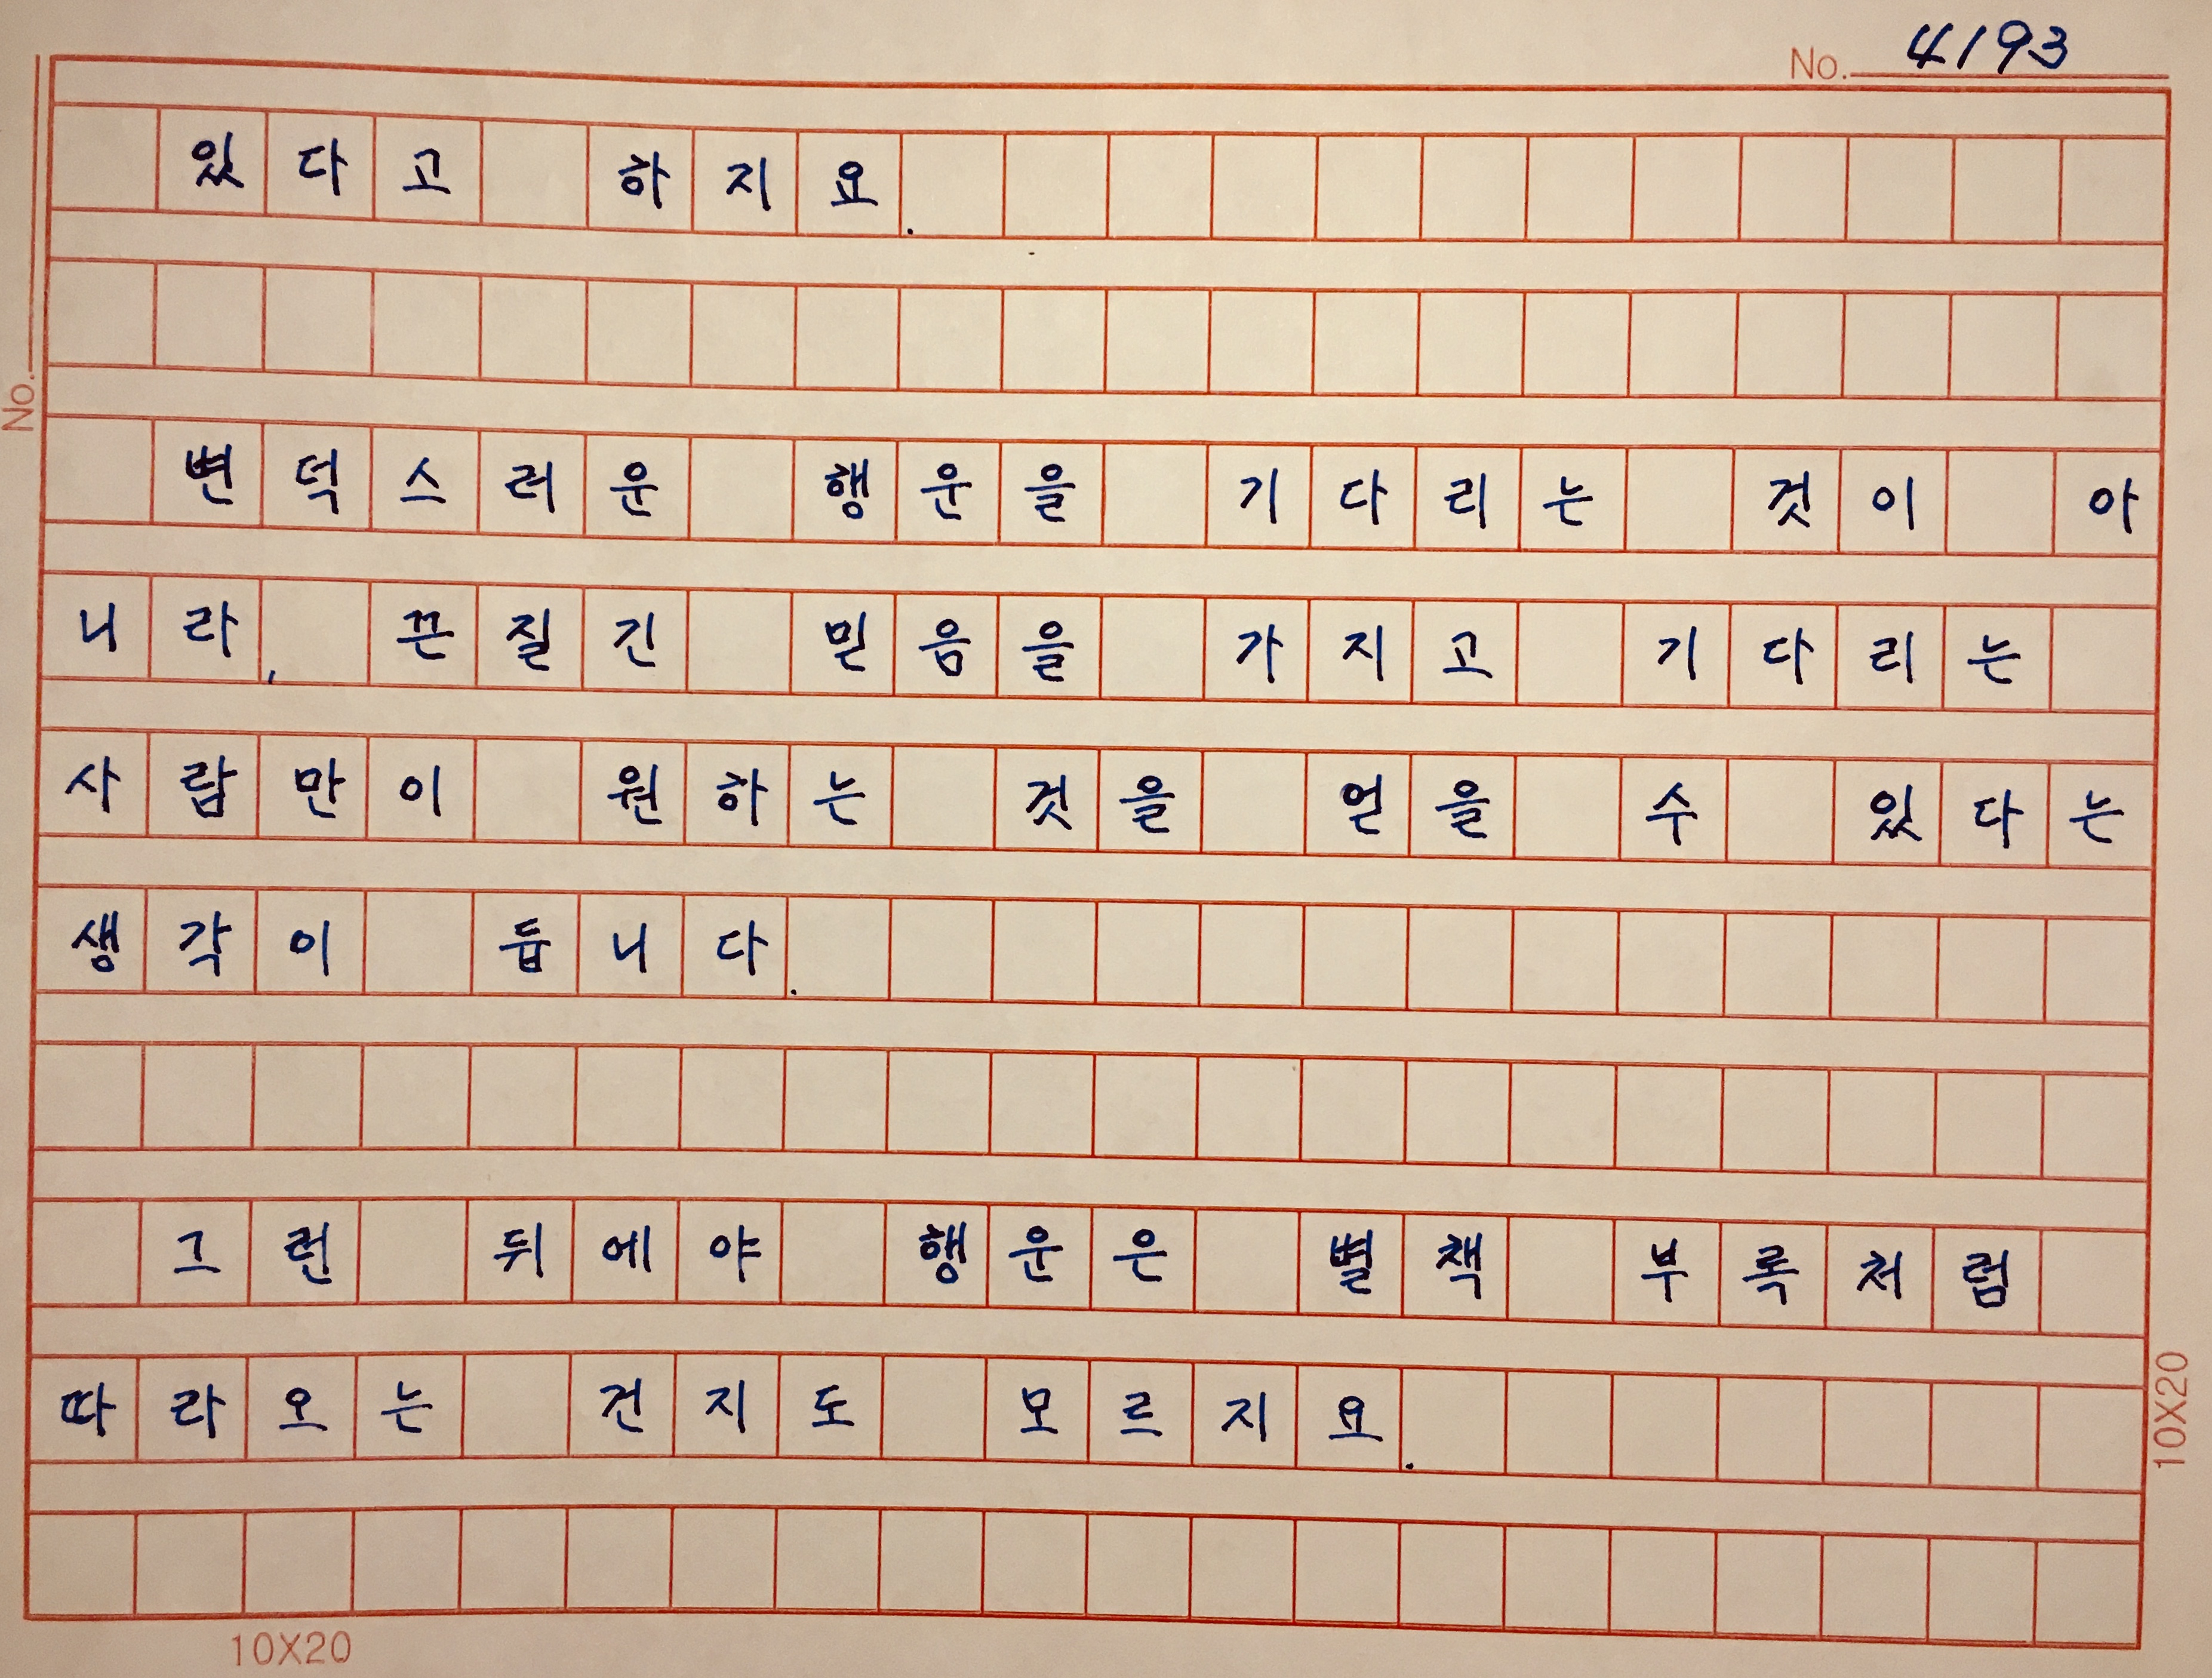 No. 4193
있다고 하지요.
No.
변덕스러운 행운을 기다리는 것이 아
니라, 끈질긴 믿음을 가지고 기다리는
사람만이 원하는 것을 얻을 수 있다는
생각이 듭니다.
그런 뒤에야 행운은 별책 부록처럼
따라오는 건지도 모르지요.
10X20
10X20